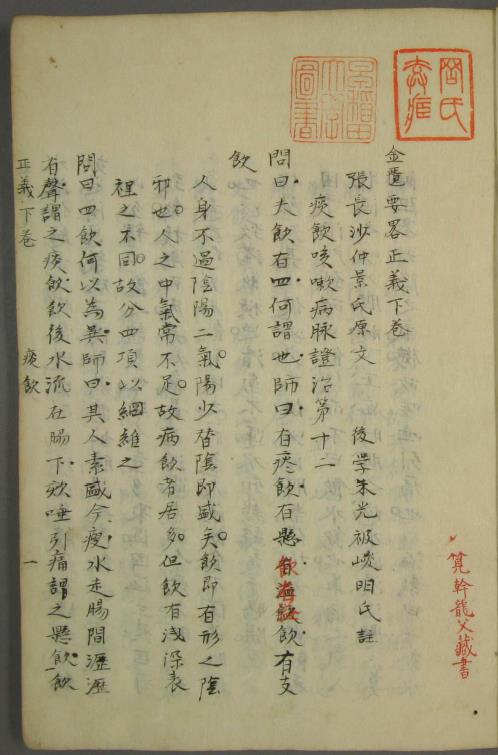 金匱要畧正義下卷
張長沙仲景氏原文　後學朱光被峻明氏註
痰飲咳嗽病脉證治第十二
問曰夫飲有四何謂也師曰有痰飲有懸飲有溢飲有支
飲
人身不過陰陽二氣陽少替陰即盛矣飲即有形之陰
邪也人之中氣常不足故病飲者居多但飲有淺深表
裡之不同故分四項以綱維之
問曰四飲何以為異師曰其人素盛今瘦水走腸間瀝瀝
有聲謂之痰飲飲後水流在脇下欬唾引痛謂之懸飲飲
正義下卷　痰飲　一
筧幹龍父藏書
圖書